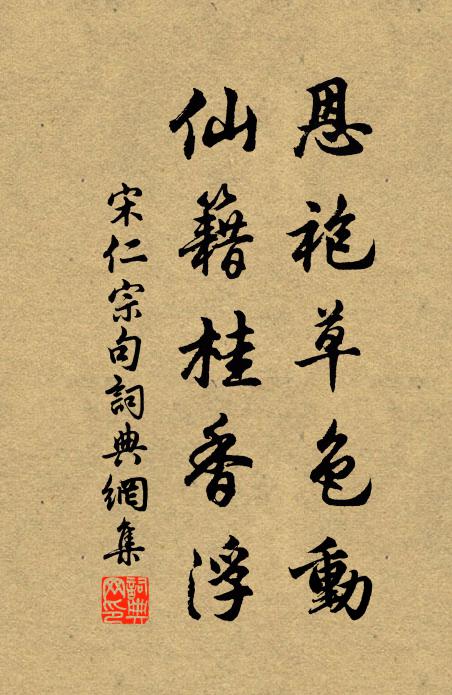 恩袍草色動
仙籍桂香浮
宋仁宗句詞典網集
詞典網印